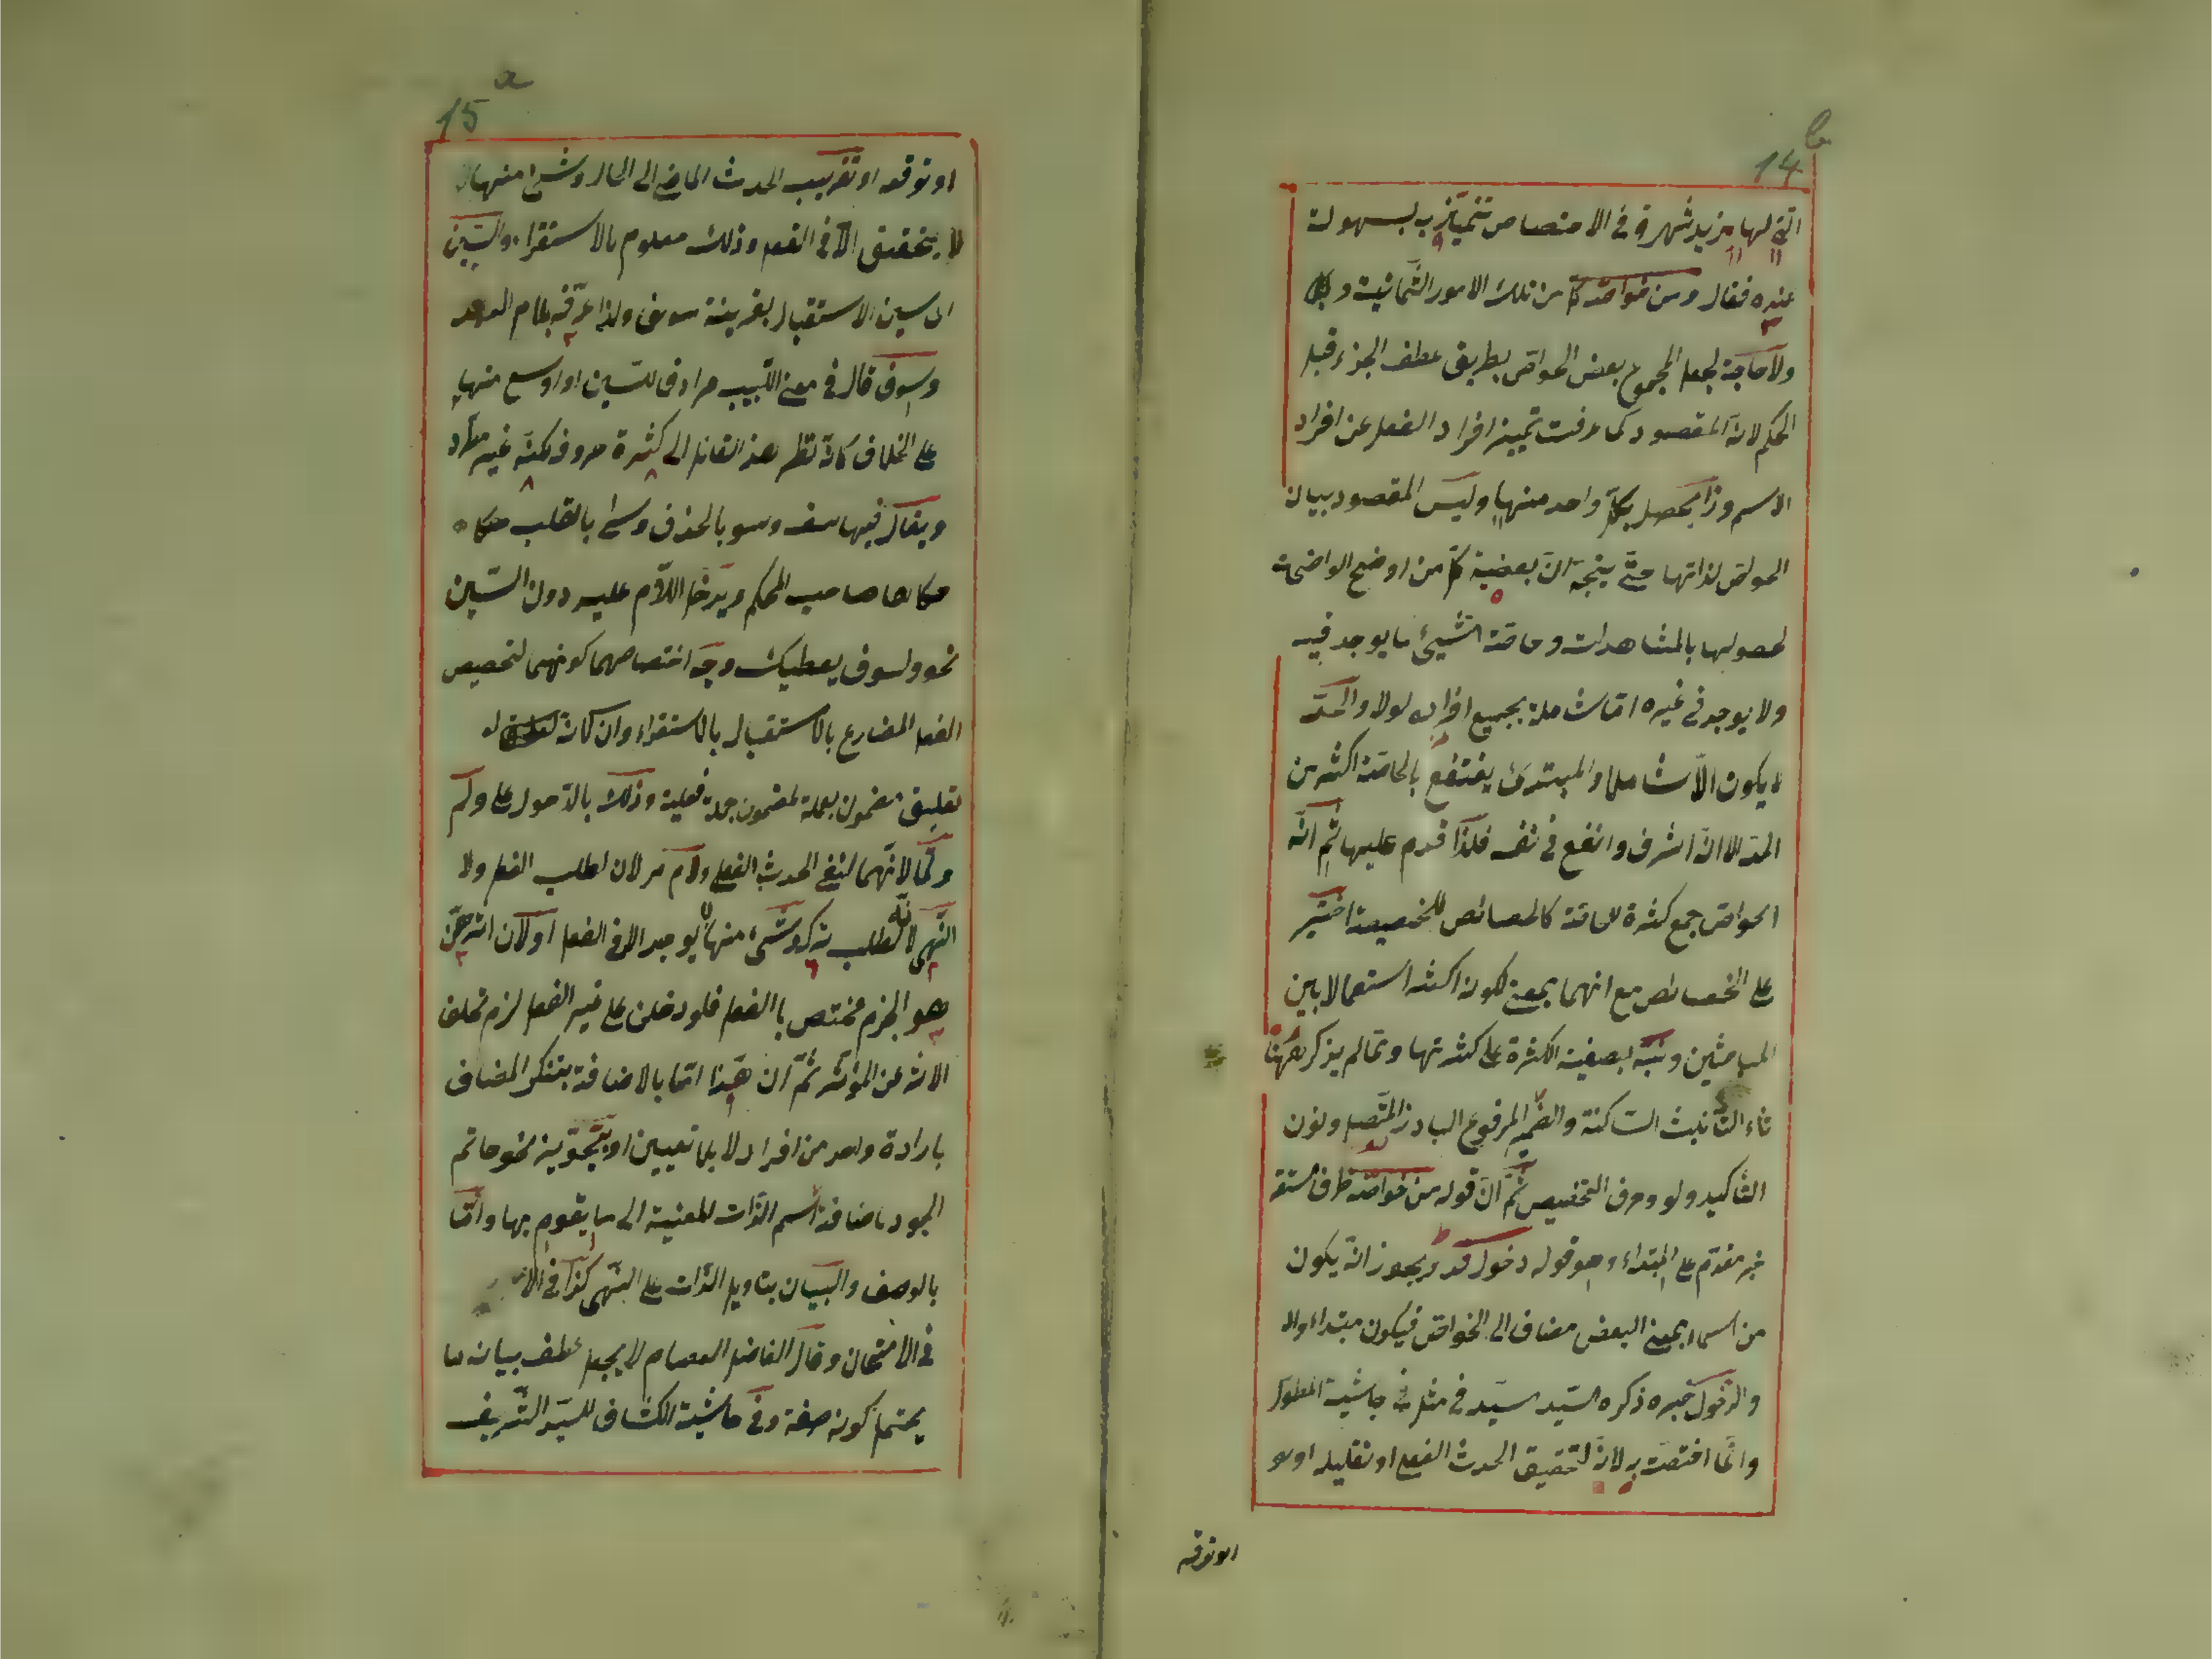 b
14
التي لها مزيد شهرة في الاختصاص تتميّز به بسهولت
عنده فقال ومن خواصّه كلّ من تلك الامور الثّمانية
ولا حاجة لجعل المجموع بعض الخواصّ بطريق عطف الجزء قبل
الحكم لانّ المقصود كما عرفت تميز افراد الفعل عن افراد
الاسم وذا يحصل بكلّ واحد منها وليس المقصود ببيان
الخواصّ لذاتها حتّى يتّجه انّ بعضية كلّ من اوضح الواضحات
لحصولها بالمشاهدات وخاصّة الشيئ ما يوجد فيه
ولا يوجد في غيره امّا شاملة بجميع افراده اولا والحدّ
لا يكون الّا شاملا والمبتدئ ينتفع بالخاصّة اكثر من
الحدّ الا انّه اشرف وانفع في نفسه فلذا قدم عليها ثمّ انّه
الخواصّ جمع كثرة للخاصّة كالخصائص للخصيصة اختير
على الخصائص مع انهما بمعنى لكونه اكثر استعمالا بين
المباحثين ونبّه بصيغة الكثرة على كثرتها وممّا لم يذكر ههنا
تاء التّأنيث السّاكنة والضّمير المرفوع البارز المتّصل ونون
التّأكيد ولو وحرف التحضيض ثمّ انّ قوله من خواصّه ظرف مستقر
خبر مقدّم على المبتداء وهو قوله دخول قد ويجوز انّه يكون
من اسما بمعنى البعض مضاف الى الخواصّ فيكون مبتداء
والدّخول خبره ذكره السّيد سيّد في مثله في حاشية المطوّل
وانّما اختصّت به لانّه لتحقيق الحدث الفعل او تقليله او
او توقعه
a
15
او توقعه او تقريب الحدث الماضي الى الحال وشيئ منها
لا يتحقق الّا في الفعل وذلك معلوم بالاستقراء والسّين
اى سين الاستقبال بقرينة سوف ولذا عرّفه بلام العهد
وسوف قال في مغني اللّبيب مرادف للسّين او اوسع منها
على الخلاف كانّه نظر هذا القائل الى كثرة حروف لكنّه غير مطّرد
ويقال فيها سف وسو بالحذف وسى بالقلب
حكاها صاحب المحكم ويدخل اللّام عليه دون السّين
نحو ولسوف يعطيك وجه اختصاصهما كونهما لتخصيص
الفعل المضارع بالاستقبال بالاستقراء وان كانه
تعليق مضمون جملة لمضمون جملة فعلية وذلك بالدّخول على ولم
ولمّا لانّهما لنفي الحدث الفعل ولام مر لان لطلب الفعل ولا
النّهي لانّه لطلب تركه وشيئ منها لا يوجد الا في الفعل او لان اثرهنّ
هو الجزم مختص باالفعل فلو دخلن على غير الفعل لزم تخلف
الاثر عن المؤثّر ثمّ ان هذا امّا بالاضافة بتنكر المضاف
بارادة واحد من افراد لا بلا تعيين او نحو حاتم
الجود باضافة اسم الذّات للمعنية الى ما يقوم بها وامّا
بالوصف والبيان بتاويل الذّات على النّهي كذا في
في الامتحان وقال الفاضل العصام لا يجعل عطف بيان ما
يحتمل كونه صفة وفي حاشية الكشّاف للسيّد الشّريف